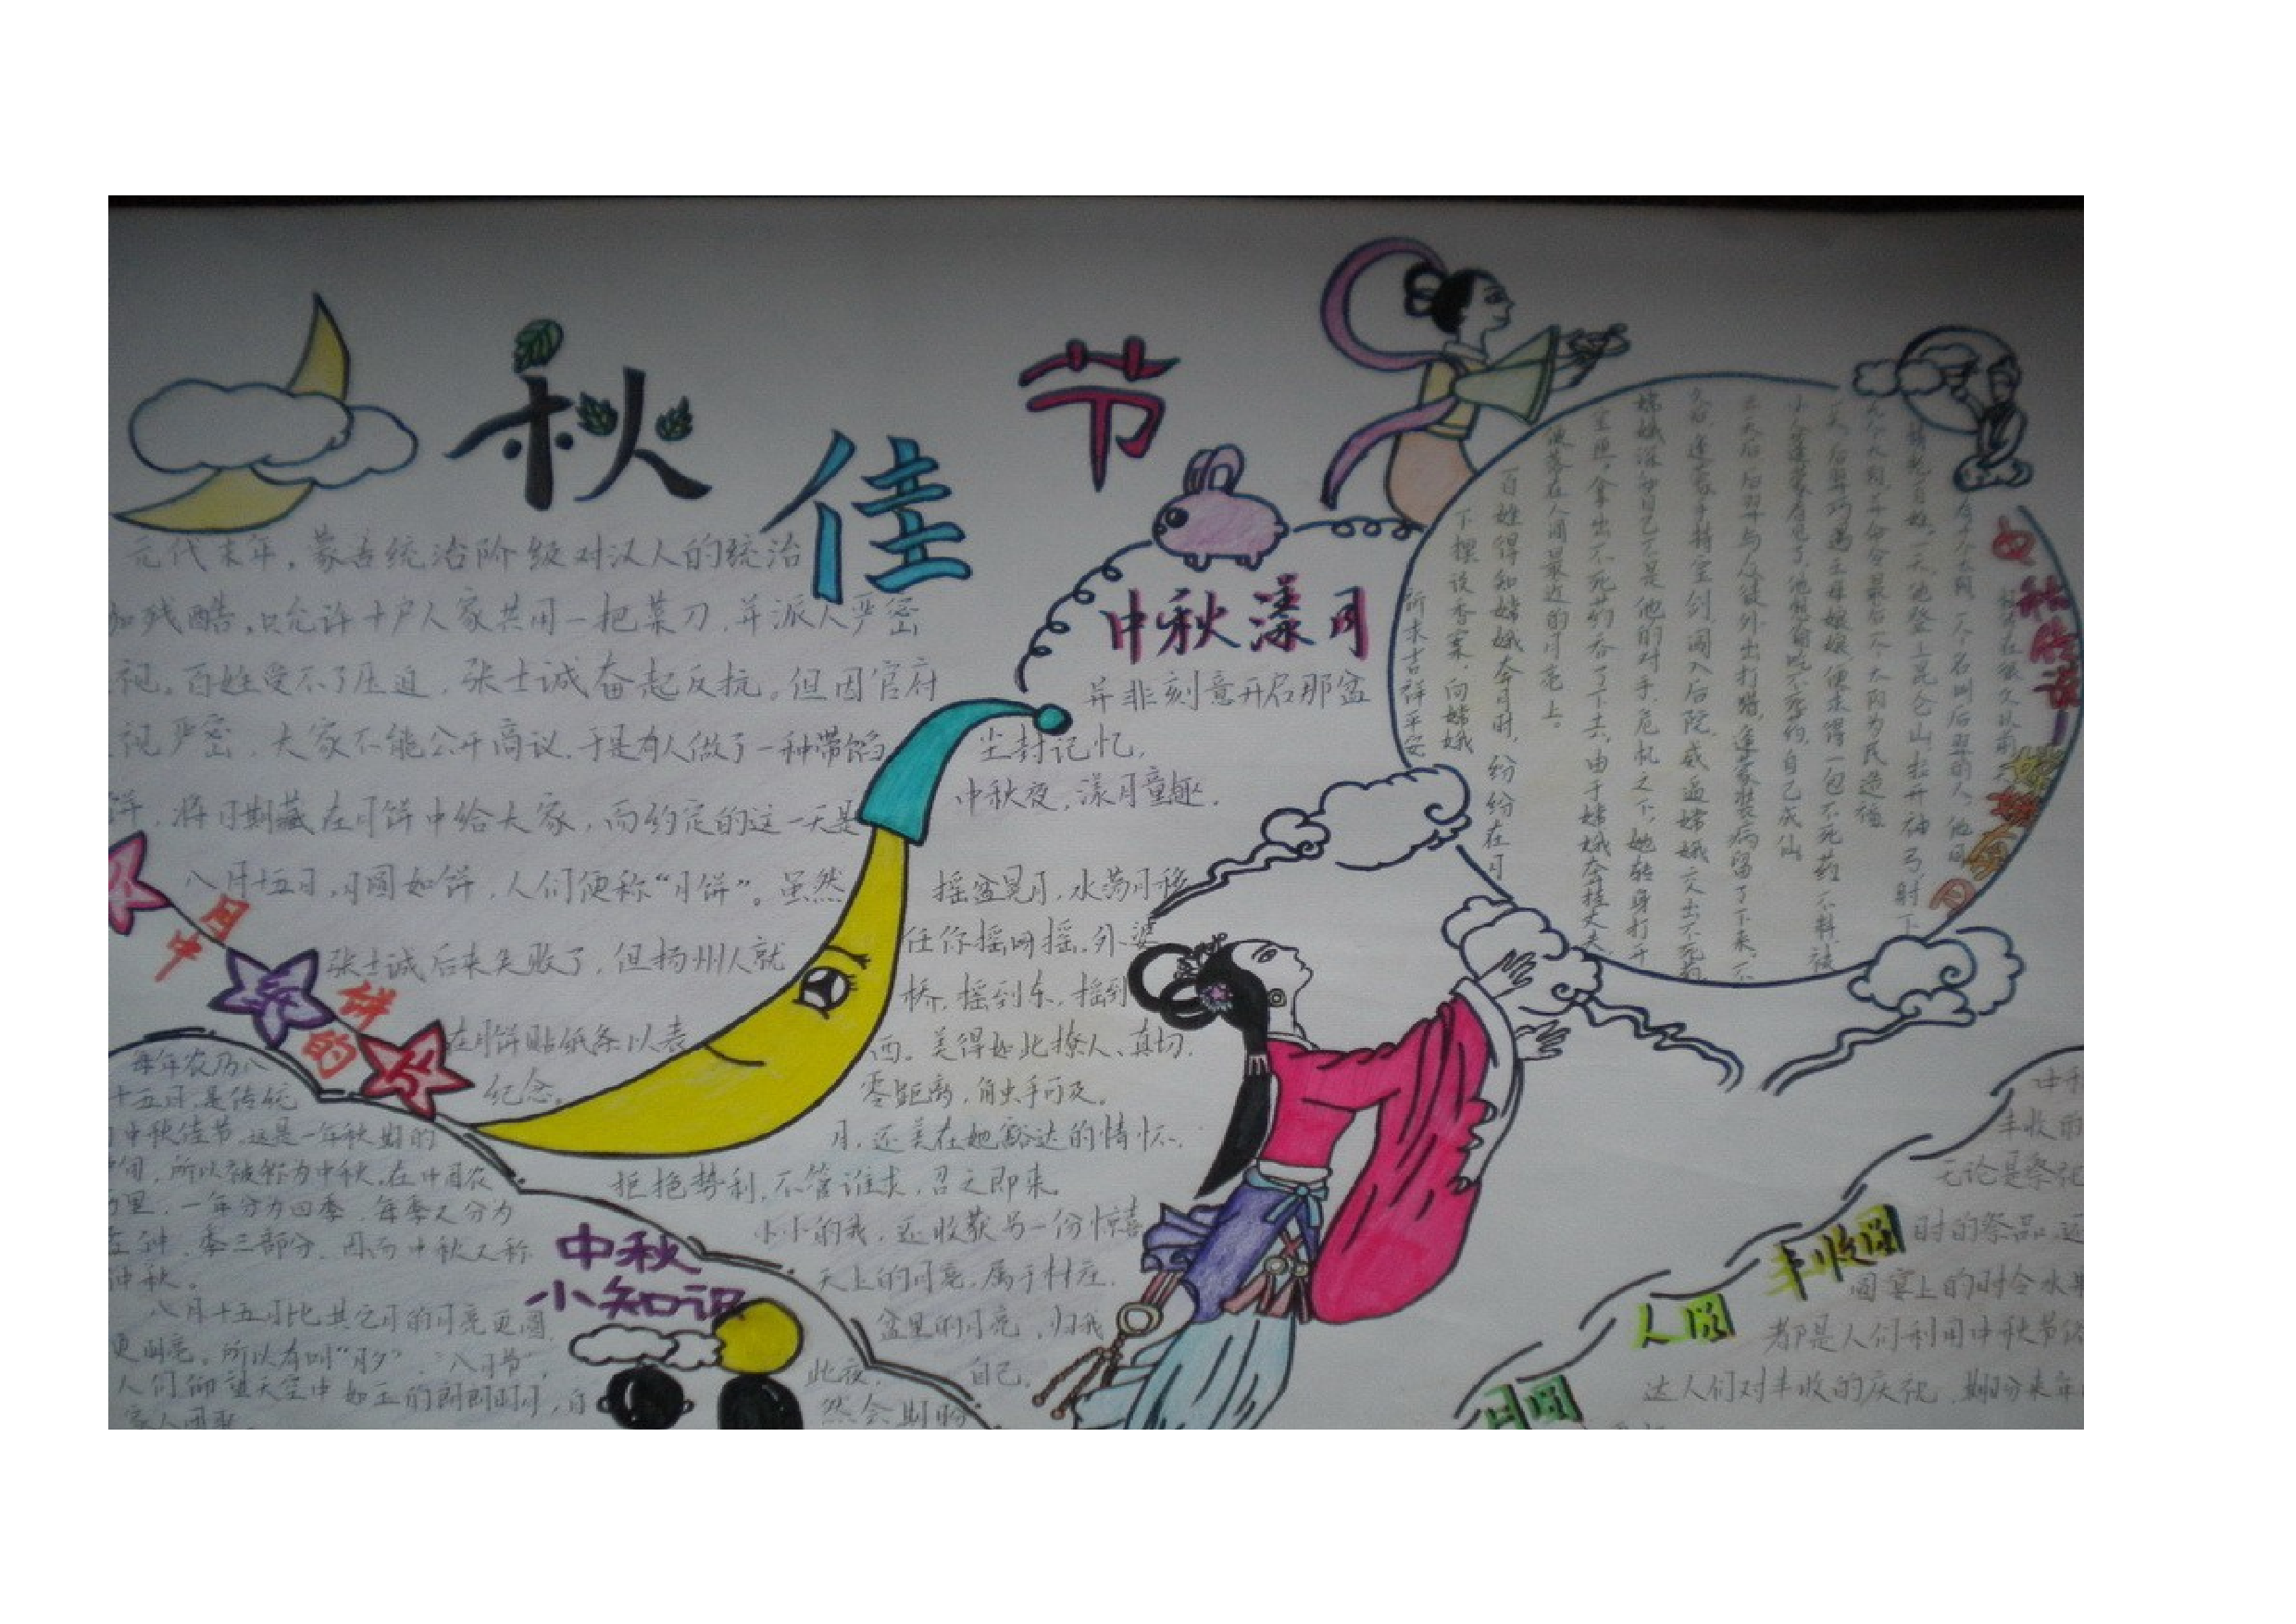 秋佳节
元代末年，蒙古统治阶级对汉人的统治
加残酷，只允许十户人家共用一把菜刀，并派人严密
视。百姓受不了压迫，张士诚奋起反抗。但因官府
视严密，大家不能公开商议，于是有人做了一种带馅
饼，将日期藏在月饼中给大家，而约定的这一天是
八月十五日，月圆如饼，人们便称“月饼”。虽然
张士诚后来失败了，但扬州人就
在月饼贴纸条以表
纪念。
月中
饼的
每年农历八
十五日，是传统
中秋佳节，这是一年秋期的
间，所以被称为中秋，在中国农
历里，一年分为四季，每季又分为
孟、仲、季三部分，因而中秋又称
仲秋。
八月十五月比其它月的月亮更圆，
更明亮，所以有叫“月夕”，“八月节”，
人们仰望天空中如玉的朗朗明月，自
家人团聚。
中秋
小知识
中秋漾月
并非刻意开启那盆
尘封记忆，
中秋夜，漾月童趣。
摇盆晃月，水荡月移
任你摇啊摇，外婆
桥，摇到东，摇到
西。美得如此撩人、真切，
零距离，触手可及。
月，还美在她豁达的情怀，
拒抱势利，不管谁求，召之即来
小小的我，还收获另一份惊喜
天上的月亮，属于村庄，
盆里的月亮，归我
自己。
此夜，
然会期盼
中秋传说一嫦娥奔月
相传在很久以前，天
有十个太阳，一个名叫后羿的人，他同
情受苦百姓，一天，他登上昆仑山，拉开神弓，射下
九个太阳，并命令最后一个太阳为民造福
一天，后羿巧遇王母娘娘，便求得一包不死药，不料被
小人逢蒙看见了，他想偷吃不死药，自己成仙
三天后，后羿与众徒外出打猎，逢蒙装病留了下来，不
久后，逢蒙手持宝剑，闯入后院，威逼嫦娥交出不死药，
嫦娥深知自己不是他的对手，危机之下，她转身打开
宝匣，拿出不死药吞了下去，由于嫦娥牵挂丈夫，
便落在人间最近的月亮上。
百姓得知嫦娥奔月时，纷纷在月
下摆设香案，向嫦娥
祈求吉祥平安
丰收的
无论是祭祀
时的祭品，还
圆宴上的时令水果
都是人们利用中秋节
达人们对丰收的庆祝，期盼来年
丰收圆
人圆
月圆